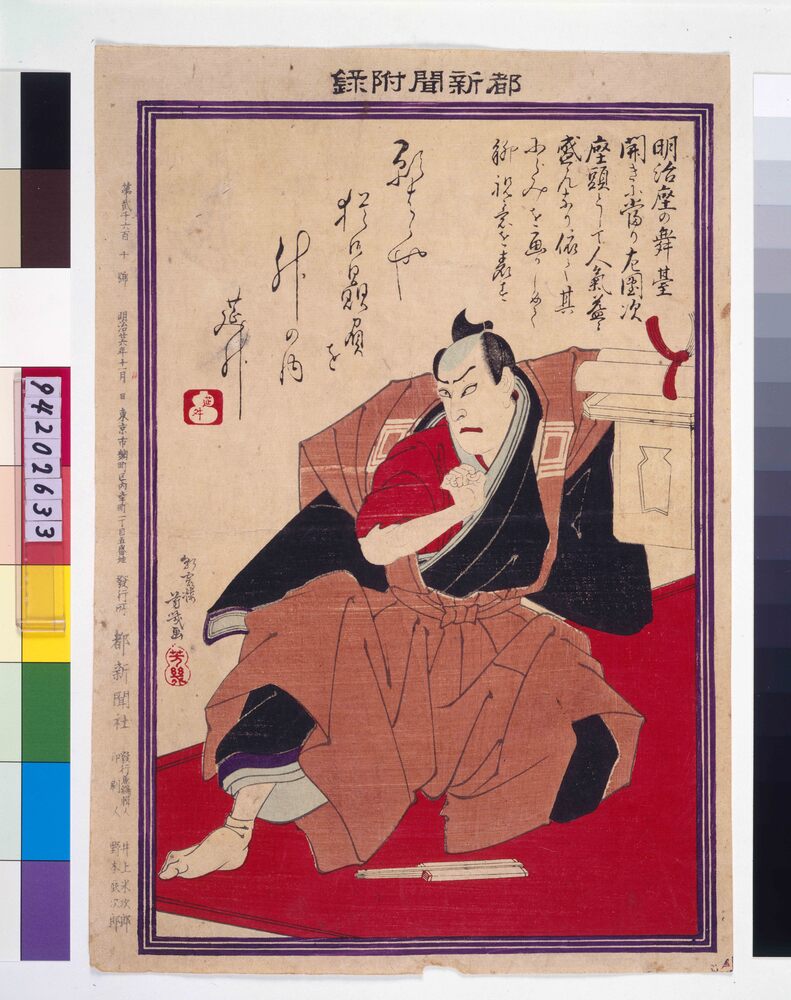 都新聞附録
明治座の舞臺
開きに當り左團次
座頭として人氣益々
盛んなり依て其
小らみを画かしめて
聊祝意を表す
猶御贔屓を
升の内
延升
延升
芳幾画
芳幾
第貳千六百 十 號 明治廿六年十一月 日 東京市麹町區内幸町一丁目五番地 發行所 都新聞社
發行兼編輯人 井上米次郎
印刷人 野木鉄次郎
94202633